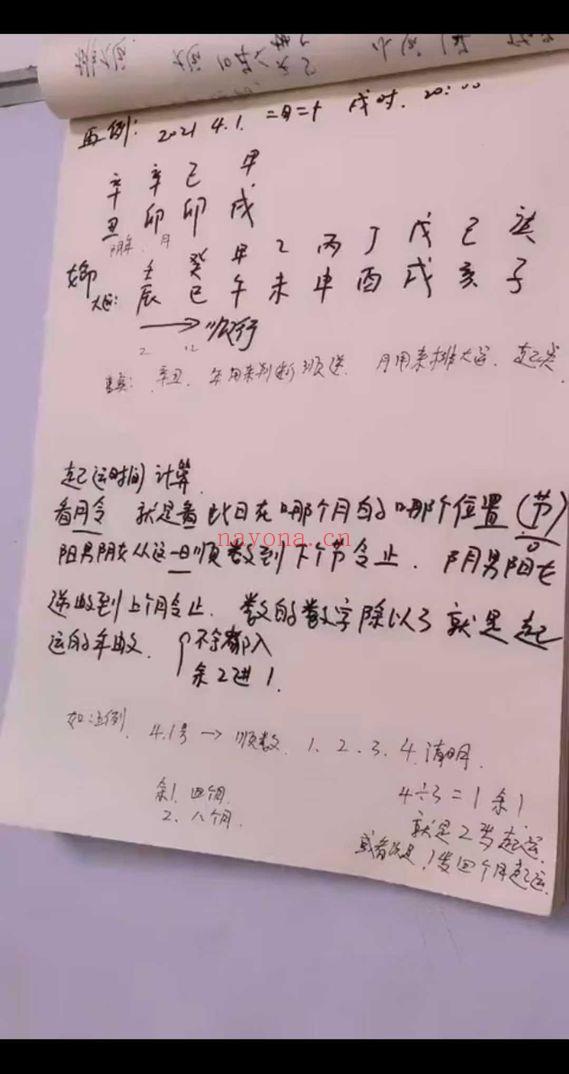 再例: 2021 4.1. 二月二十 戌时. 20:00
辛 辛 己 甲
丑 卯 卯 戌
阴年. 月
壬 癸 甲 乙 丙 丁 戊 己
大运: 辰 巳 午 未 申 酉 戌 亥 子
→ 顺行
2 12
辛丑. 年用来判断顺逆. 月用来排大运.
起运时间计算
看月令 就是看 此日在哪个月的哪个位置(节)
nayona.cn
阳男阴女从这一日顺数到下个节令止. 阴男阳女
逆数到上个月令止. 数的数字除以3 就是起
运的年数. 不余都入
余2进1.
4.1号 → 顺数. 1. 2. 3. 4. 清明.
余1. 四个月.
4÷3=1余1
2. 八个月.
就是2岁起运.
或者说是1岁四个月起运.